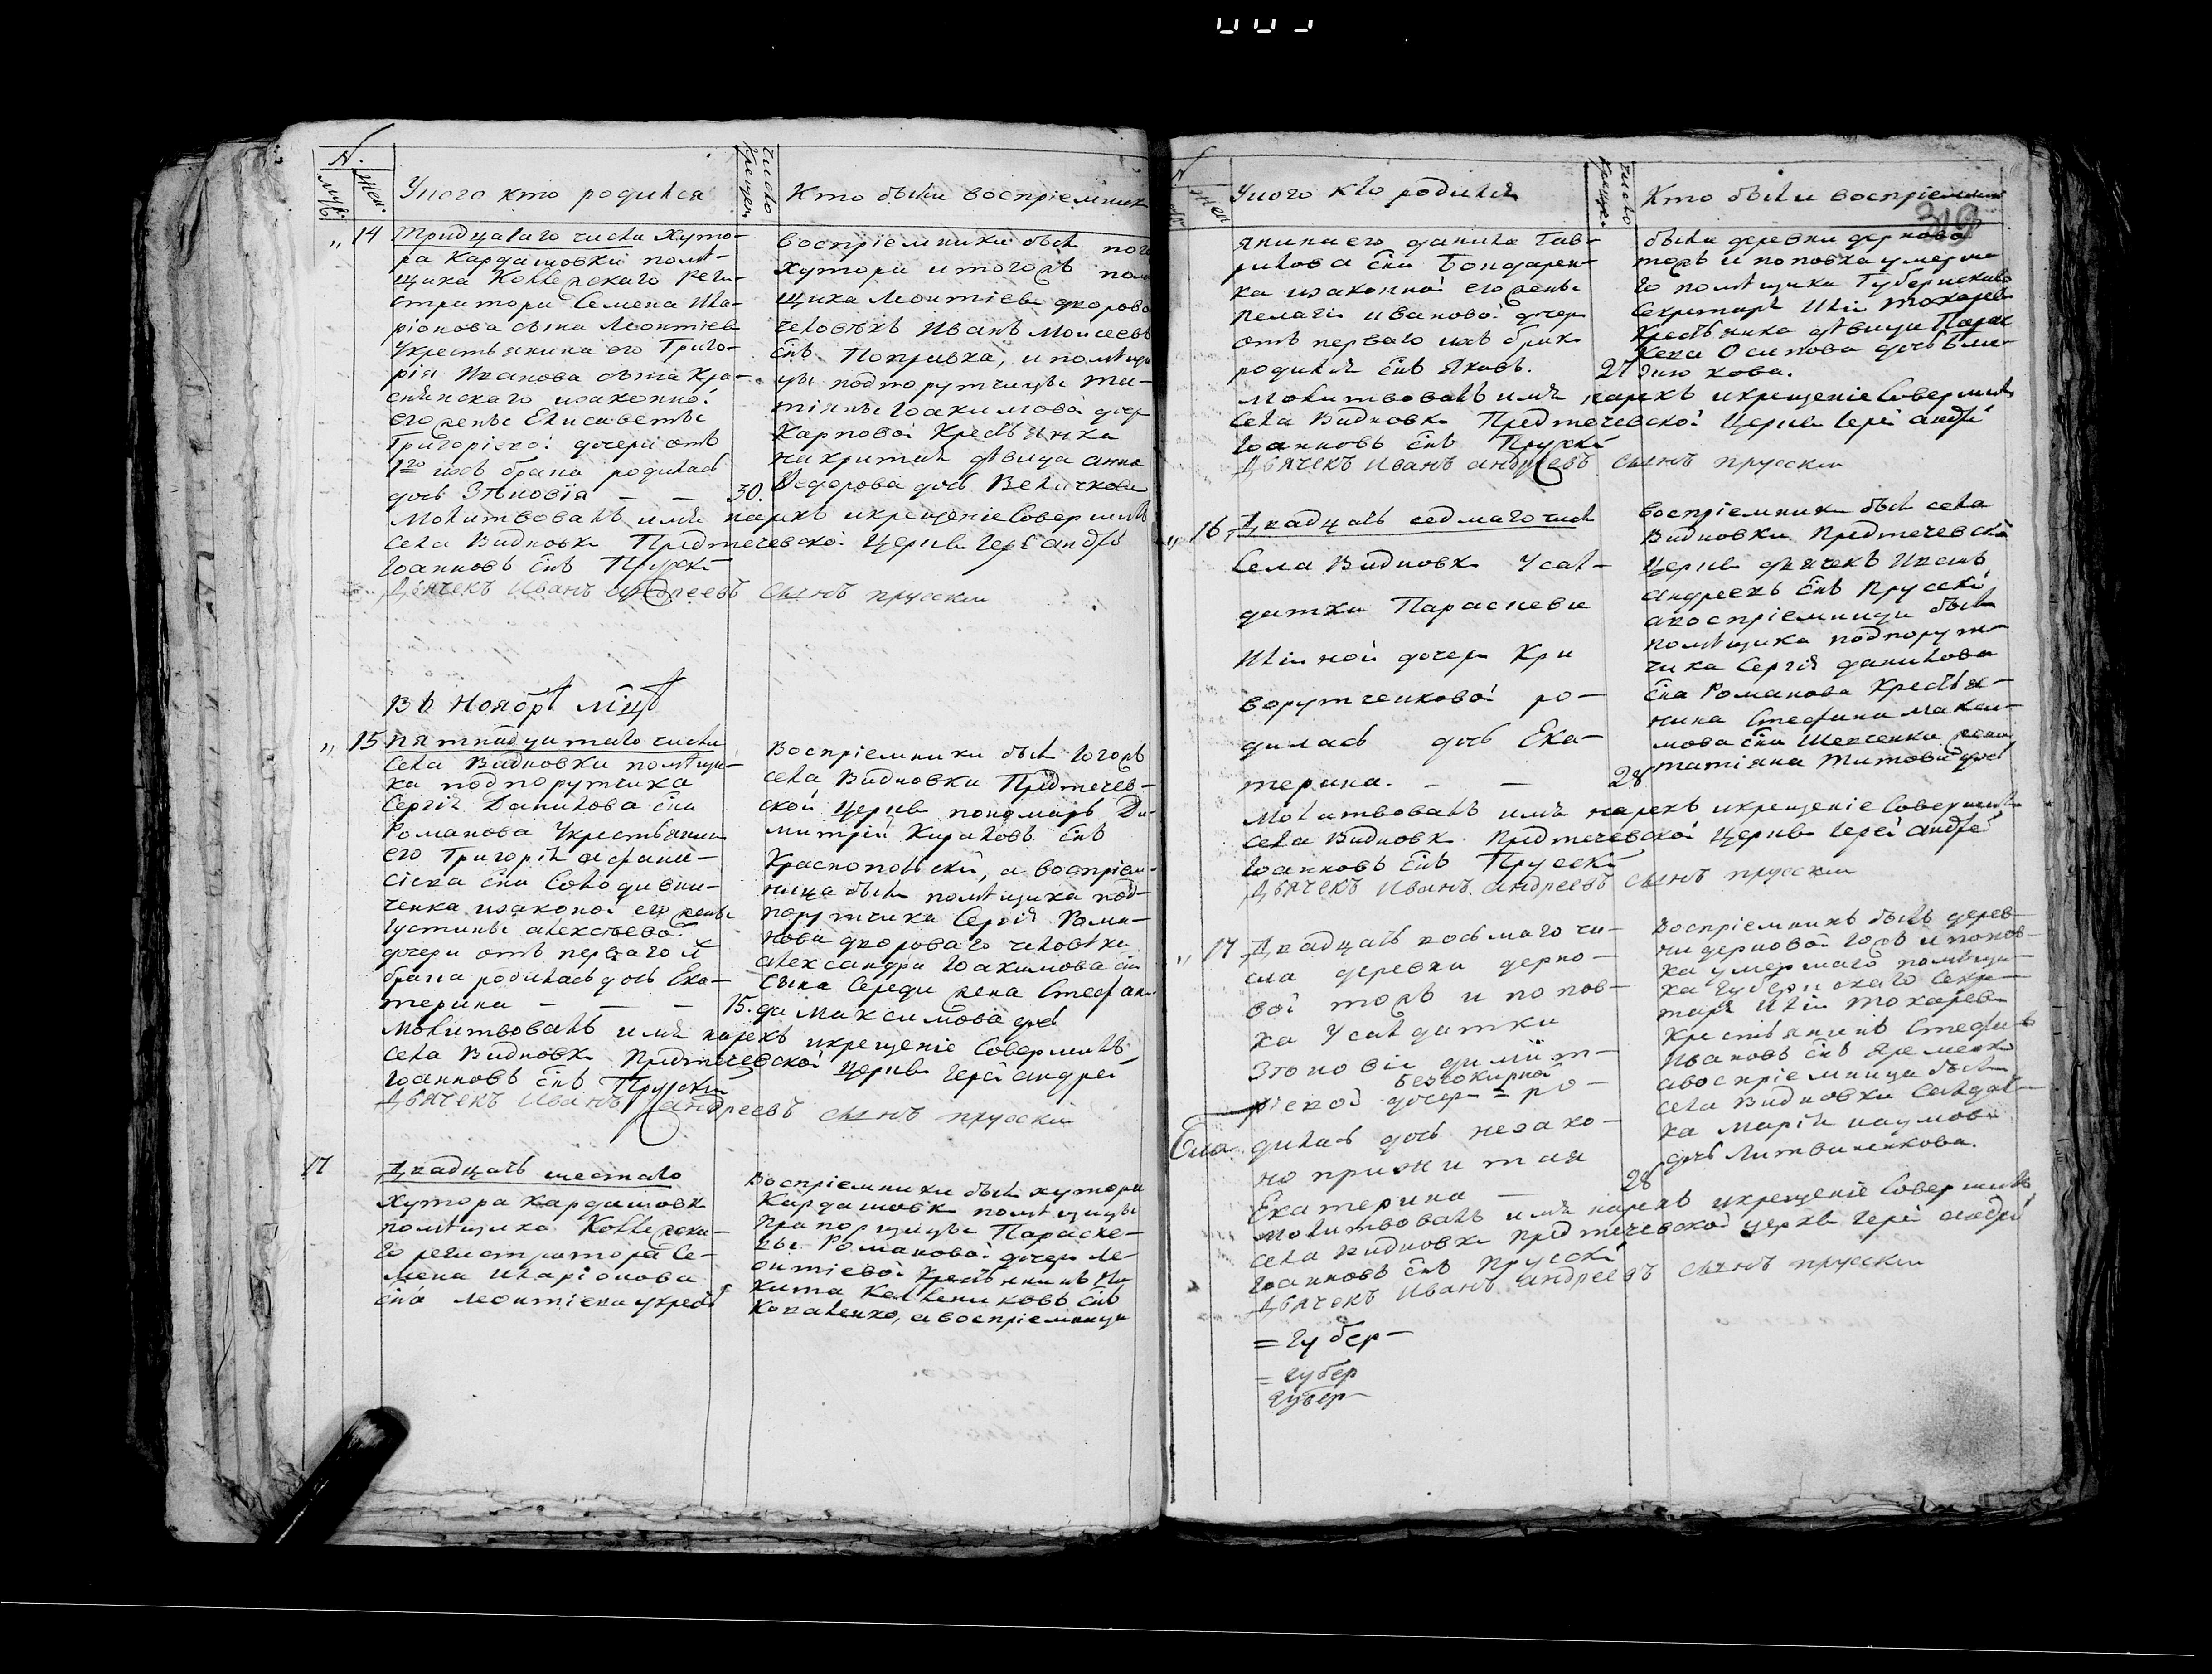 N.
муж.
жен.
У кого кто родился
число крещен.
Кто были воспріемник
„ 14
Тридцатаго числа Хуто-
ра Кардашовки помѣ-
щика Коллежскаго Реги-
стратора Семена Ила-
ріонова сына Леонтіева
у крестьянина его Григо-
рія Иванова сына Кра-
его жены Елисаветы
Григоріевой дочери отъ
1го ихъ брака родилась
дочь Зѣновія — — 30.
воспріемники был
хутора и тогожъ
щика Леонтіева дворово
человѣкъ Иванъ Моисеевъ
снъ Попривка, и помѣщи
цы подпорутчицы Та-
тіяны Іоакимовой дочер
Карповой Крест янка
дѣвица анна
Ѳедорова дочь Величкова
Молитвовалъ имя нарекъ и крещеніе Совершилъ
Села Видновки Предтечевской Церкви Іерей андрѣй
Іоанновъ снъ Прускій
Дьячекъ Иванъ андреевъ сынъ прускій
Въ Ноябрѣ мцѣ
„ 15
Пятнадцатаго числа
Села Видновки помѣщи-
ка подпорутчика
Сергія Данилова сна
Романова у крестьянина
его Григорія афана-
сіева сна Солодовни-
ченка и законой его жены
Іустины алексѣевой
дочери отъ перваго
брака родилась дочь Ека-
терина — — — 15.
Воспріемники был тогожъ
села Видновки Предтечев-
ской Церкви пономарь Ди-
митрій Кириловъ снъ
Краснопольскій, а воспріем-
ница была помѣщика под-
порутчика Сергія Рома-
нова двороваго человѣка
александра Іоакимова
сына Середи жена Стефани-
да Максимова дочь
Молитвовалъ имя нарекъ и крещеніе Совершилъ
Села Видновки Предтечевской Церкви Іерей андрей
Іоанновъ снъ Прускій
Дьячекъ Иванъ андреевъ сынъ прускій
17
Двадцать шестаго
Хутора Кардашовк
помѣщика Коллежска-
го регистратора Се-
мена Иларіонова
сна Леонтіева у крест
Воспріемники был хутора
Кардашовк помѣщицы
прапорщицы Параске-
вы Романовой дочери Ле-
онтіевой Крестьянинъ Ни
кита снъ
Коваленко, а воспріемница
N
жен
У кого кто родился
число крещен.
Кто были воспріемник
янина его данила Гав-
рилова сна Бондарен-
ка и законной его жены
Пелагіи ивановой дочер
отъ перваго ихъ брака
родился снъ Яковъ. 27
была деревни дерновой
тожъ и поповка умерша
го помѣщика Губернскаго
Секретаря Иліи Токарева
Крестьянка дѣвица Парас
кева Осипова дочь
Молитвовалъ имя нарекъ и крещеніе Совершилъ
Села Видновки Предтечевской Церкви Іерей андрѣй
Іоанновъ снъ Прускій
Дьячекъ Иванъ андреевъ сынъ прускій
„ 16
Двадцать седмаго числ
Села Видновк У сал-
датки Параскевы
Иліиной дочери Кри
ворутченковой ро-
дилась дочь Ека-
терина. — — 28
воспріемник был села
Видновки Предтечевской
Церкви дьячекъ Иванъ
андреевъ снъ Прускій,
а воспріемницы была
помѣщика подпорут-
чика Сергія данилова
сна Романова Крестья-
нина Стефана Макси-
мова сна Шевченка жена
татіяна Титова дочь
Молитвовалъ имя нарекъ и крещеніе Совершилъ
Села Видновк Предтечевской Церкви Іерей андрей
Іоанновъ снъ Прускій
Дьячекъ Иванъ андреевъ сынъ прускій
„ 17
Двадцать восьмаго чи-
сла деревни дерно-
вой тожъ и попов-
ка У салдатки
Зѣновіи димит-
безчокирной
ріевой дочери = ро-
дилась дочь незако-
но прижитая
Екатерина — 28
Воспріемникъ былъ дерев-
ни дерновой тожъ и попов-
ка умершаго помѣщи-
ка Губернскаго Секре-
таря Иліи Токарева
Крестьянинъ Стефанъ
Ивановъ снъ Яременко
а воспріемница была
села Видновки Салдат-
ка Марія наумова
дочь Литвиненкова.
Молитвовалъ имя нарекъ и крещеніе Совершилъ
Села Видновки Предтечевской церкви Іерей андрей
Іоанновъ снъ Прускій
Дьячекъ Иванъ андреевъ сынъ прускій
= Губер-
= губер
Губер-